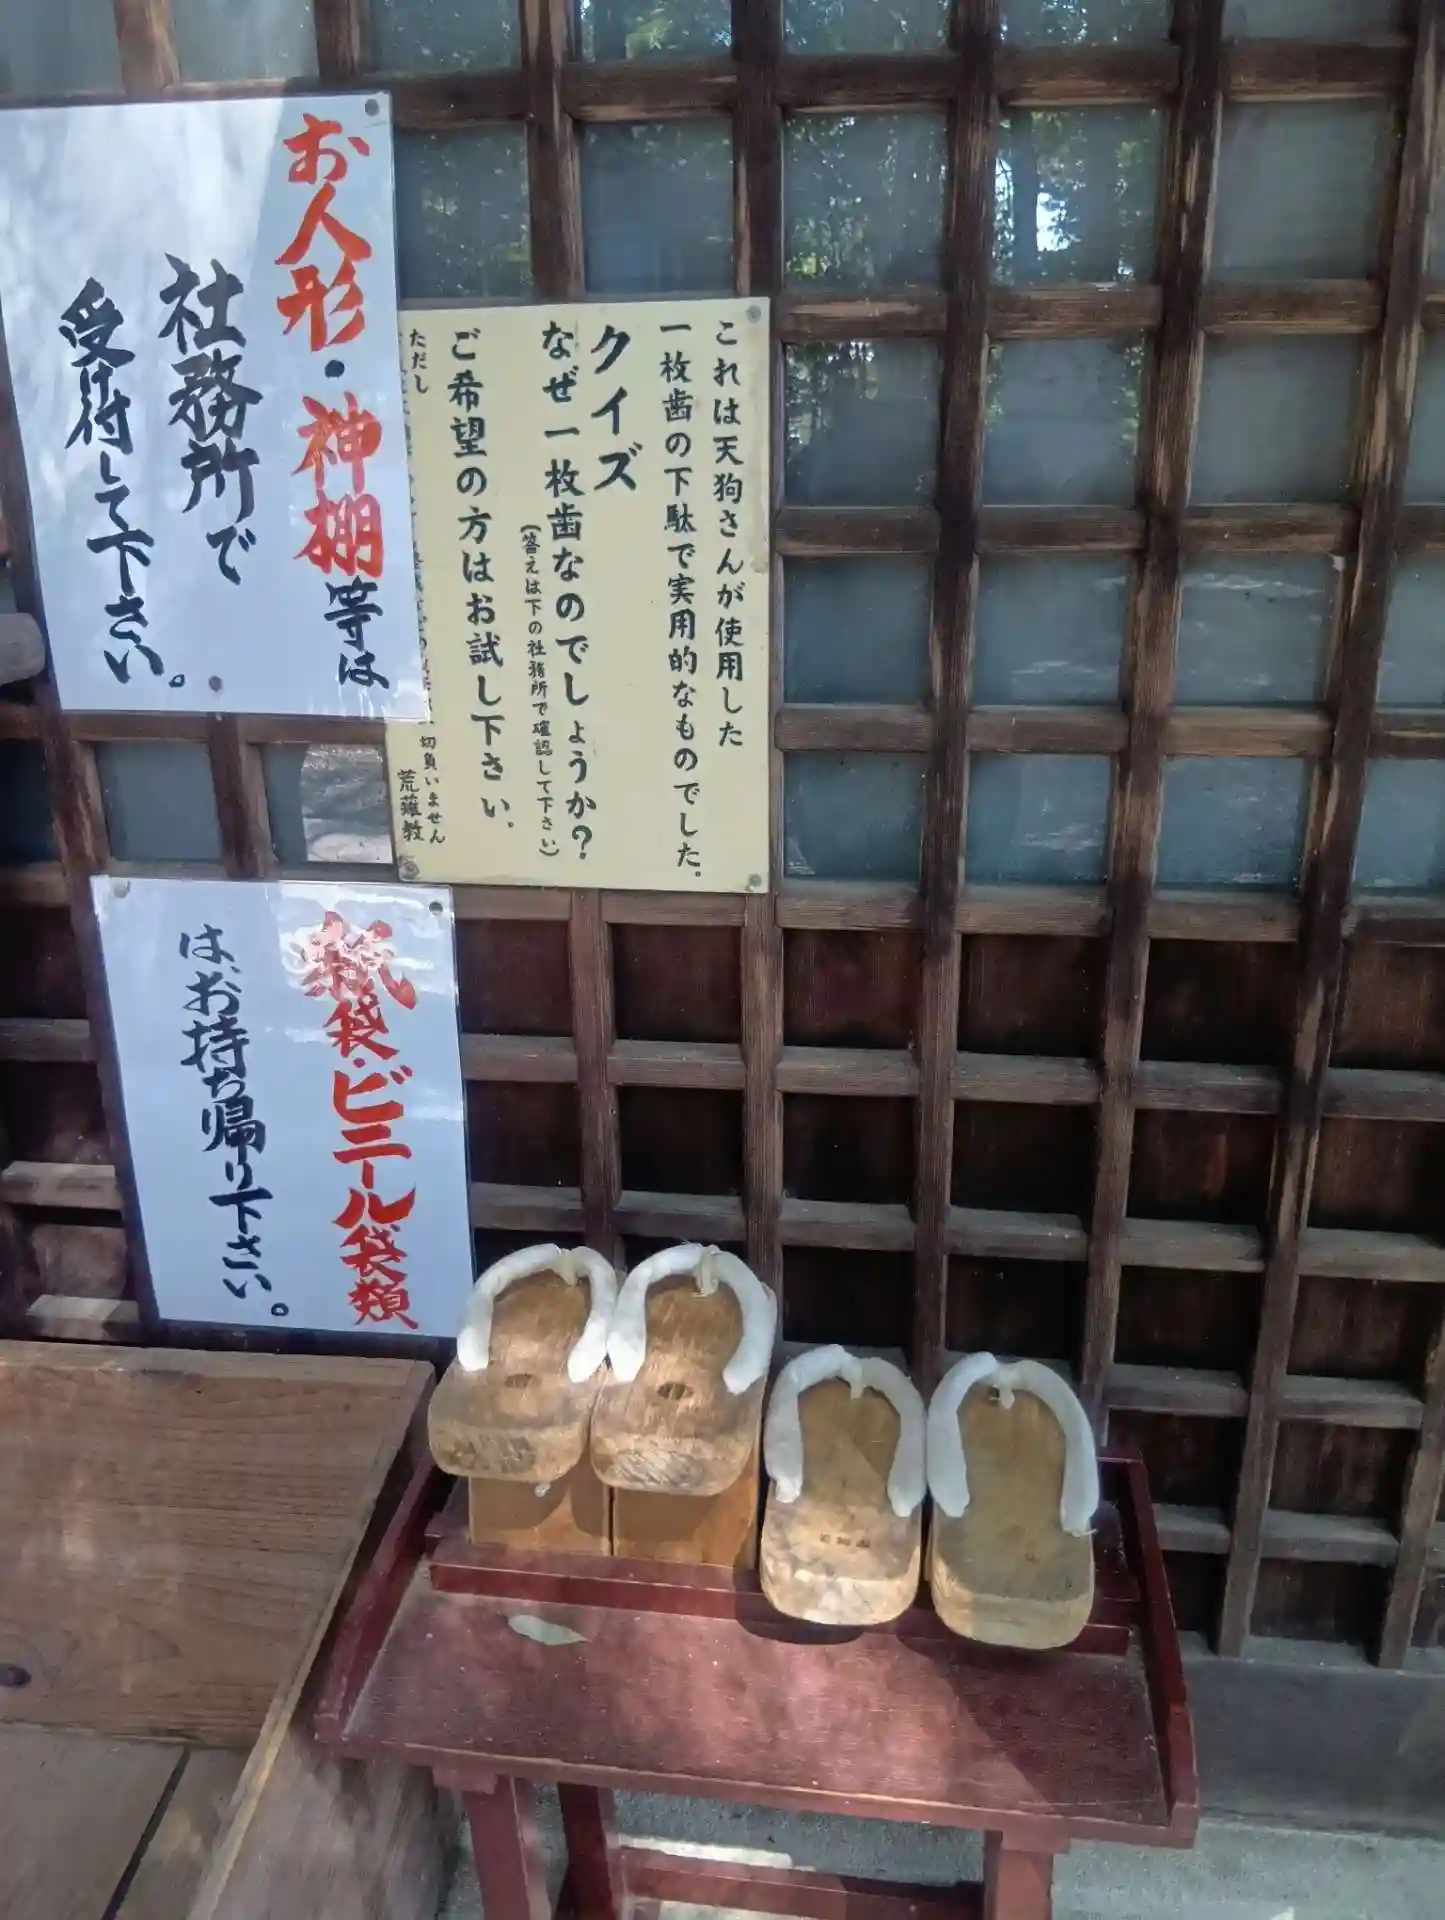 お人形・神棚等は
社務所で
受け付して下さい。
これは天狗さんが使用した
一枚歯の下駄で実用的なものでした。
クイズ
なぜ一枚歯なのでしょうか?
(答えは下の社務所で確認して下さい)
ご希望の方はお試し下さい。
ただし
切負いません
荒薙教
紙袋・ビニール袋類
は、お持ち帰り下さい。